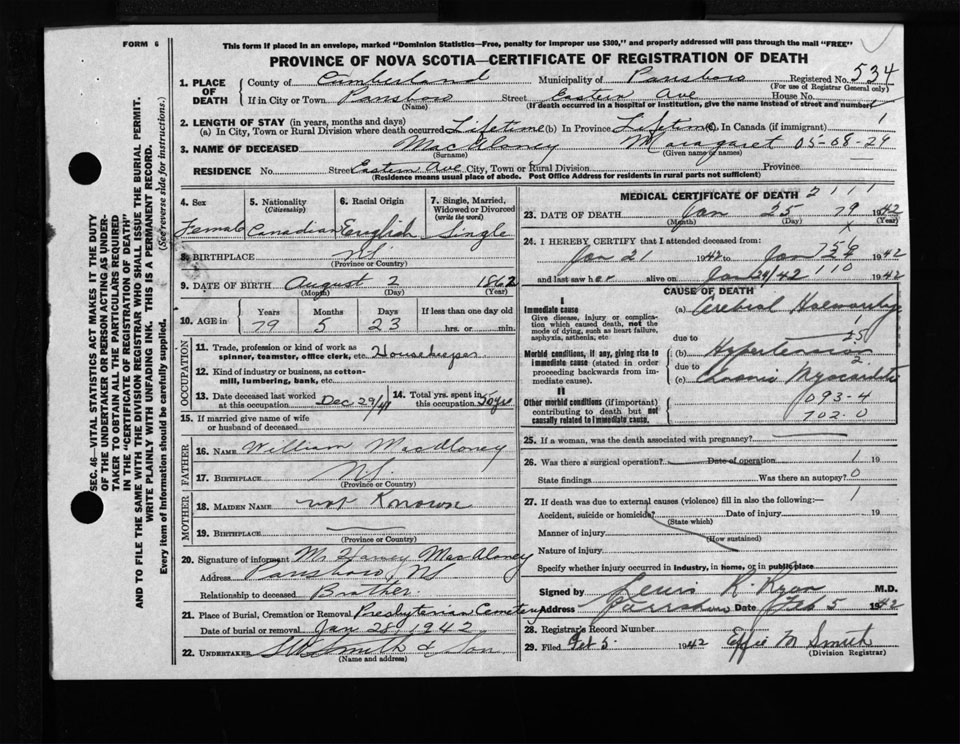 FORM 6
This form if placed in an envelope, marked "Dominion Statistics—Free, penalty for improper use $300," and properly addressed will pass through the mail "FREE"
PROVINCE OF NOVA SCOTIA—CERTIFICATE OF REGISTRATION OF DEATH
SEC. 46—VITAL STATISTICS ACT MAKES IT THE DUTY
OF THE UNDERTAKER OR PERSON ACTING AS UNDER-
TAKER TO OBTAIN ALL THE PARTICULARS REQUIRED
IN THE "CERTIFICATE OF REGISTRATION OF DEATH"
AND TO FILE THE SAME WITH THE DIVISION REGISTRAR WHO SHALL ISSUE THE BURIAL PERMIT.
WRITE PLAINLY WITH UNFADING INK. THIS IS A PERMANENT RECORD.
Every item of Information should be carefully supplied. (See reverse side for instructions.)
1. PLACE OF DEATH County of Cumberland Municipality of Parrsboro Registered No. 534
(For use of Registrar General only)
If in City or Town Parrsboro Street Eastern Ave House No.
(Name) (If death occurred in a hospital or institution, give the name instead of street and number)
2. LENGTH OF STAY (in years, months and days)
(a) In City, Town or Rural Division where death occurred Lifetime (b) In Province Lifetime (c). In Canada (if immigrant) 1
3. NAME OF DECEASED MacAloney Margaret 05-08-29
(Surname) (Given name or names)
RESIDENCE No. Street Eastern Ave City, Town or Rural Division Province
(Residence means usual place of abode. Post Office Address for residents in rural parts not sufficient)
4. Sex 5. Nationality (Citizenship) 6. Racial Origin 7. Single, Married, Widowed or Divorced (write the word)
Female Canadian English Single
8. BIRTHPLACE NS
(Province or Country)
9. DATE OF BIRTH August 2 1862
(Month) (Day) (Year)
10. AGE in Years Months Days If less than one day old
79 5 23 hrs. or min.
OCCUPATION
11. Trade, profession or kind of work as
spinner, teamster, office clerk, etc. Housekeeper
12. Kind of industry or business, as cotton-
mill, lumbering, bank, etc.
13. Date deceased last worked
at this occupation Dec 29/41
14. Total yrs. spent in
this occupation
15. If married give name of wife
or husband of deceased
FATHER
16. NAME William MacAloney
17. BIRTHPLACE NS
(Province or Country)
MOTHER
18. MAIDEN NAME not Known
19. BIRTHPLACE
(Province or Country)
20. Signature of informant Mr Harvey MacAloney
Address Parrsboro, NS
Relationship to deceased Brother
21. Place of Burial, Cremation or Removal Presbyterian Cemetery
Date of burial or removal Jan 28, 1942
22. UNDERTAKER Smith & Son
(Name and address)
MEDICAL CERTIFICATE OF DEATH 2111
23. DATE OF DEATH Jan 25 79 1942
(Month) (Day) (Year)
24. I HEREBY CERTIFY that I attended deceased from:
Jan 21 1942 to Jan 1942
and last saw her alive on Jan 24/42 110 1942
CAUSE OF DEATH
I
Immediate cause
Give disease, injury or complica-
tion which caused death, not the
mode of dying, such as heart failure,
asphyxia, asthenia, etc
(a) Cerebral Hemorrhage
due to
Morbid conditions, if any, giving rise to
immediate cause (stated in order
proceeding backwards from im-
mediate cause).
(b) Hypertension
due to 2
(c) Chronic Myocarditis
II
Other morbid conditions (if important)
contributing to death but not
causally related to immediate cause.
093-4
702.0
25. If a woman, was the death associated with pregnancy?
26. Was there a surgical operation? Date of operation 1 19
State findings Was there an autopsy? 0
27. If death was due to external causes (violence) fill in also the following:— 1
Accident, suicide or homicide? Date of injury 19
(State which)
Manner of injury
(How sustained)
Nature of injury
Specify whether injury occurred in industry, in home, or in public place
Signed by Lewis R. Ryan M.D.
Address Parrsboro Date Feb 5 1942
28. Registrar's Record Number
29. Filed Feb 5 1942 Effie M Smith
(Division Registrar)